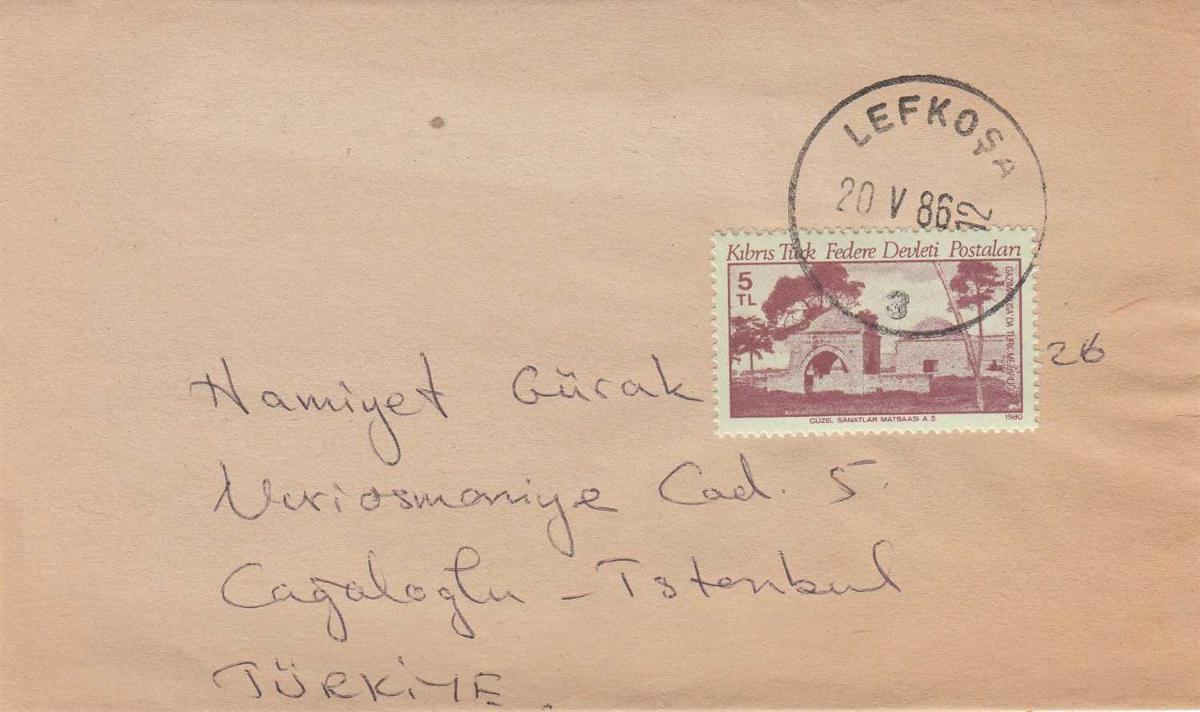 LEFKOŞA
20 V 86 12
3
Kıbrıs Türk Federe Devleti Postaları
5
TL
GAZİMAĞUSA'DA TÜRK
GÜZEL SANATLAR MATBAASI A.S.
1980
26
Hamiyet Gürak
Nuriosmaniye Cad. 5.
Cağaloğlu - Istanbul
TÜRKİYE.